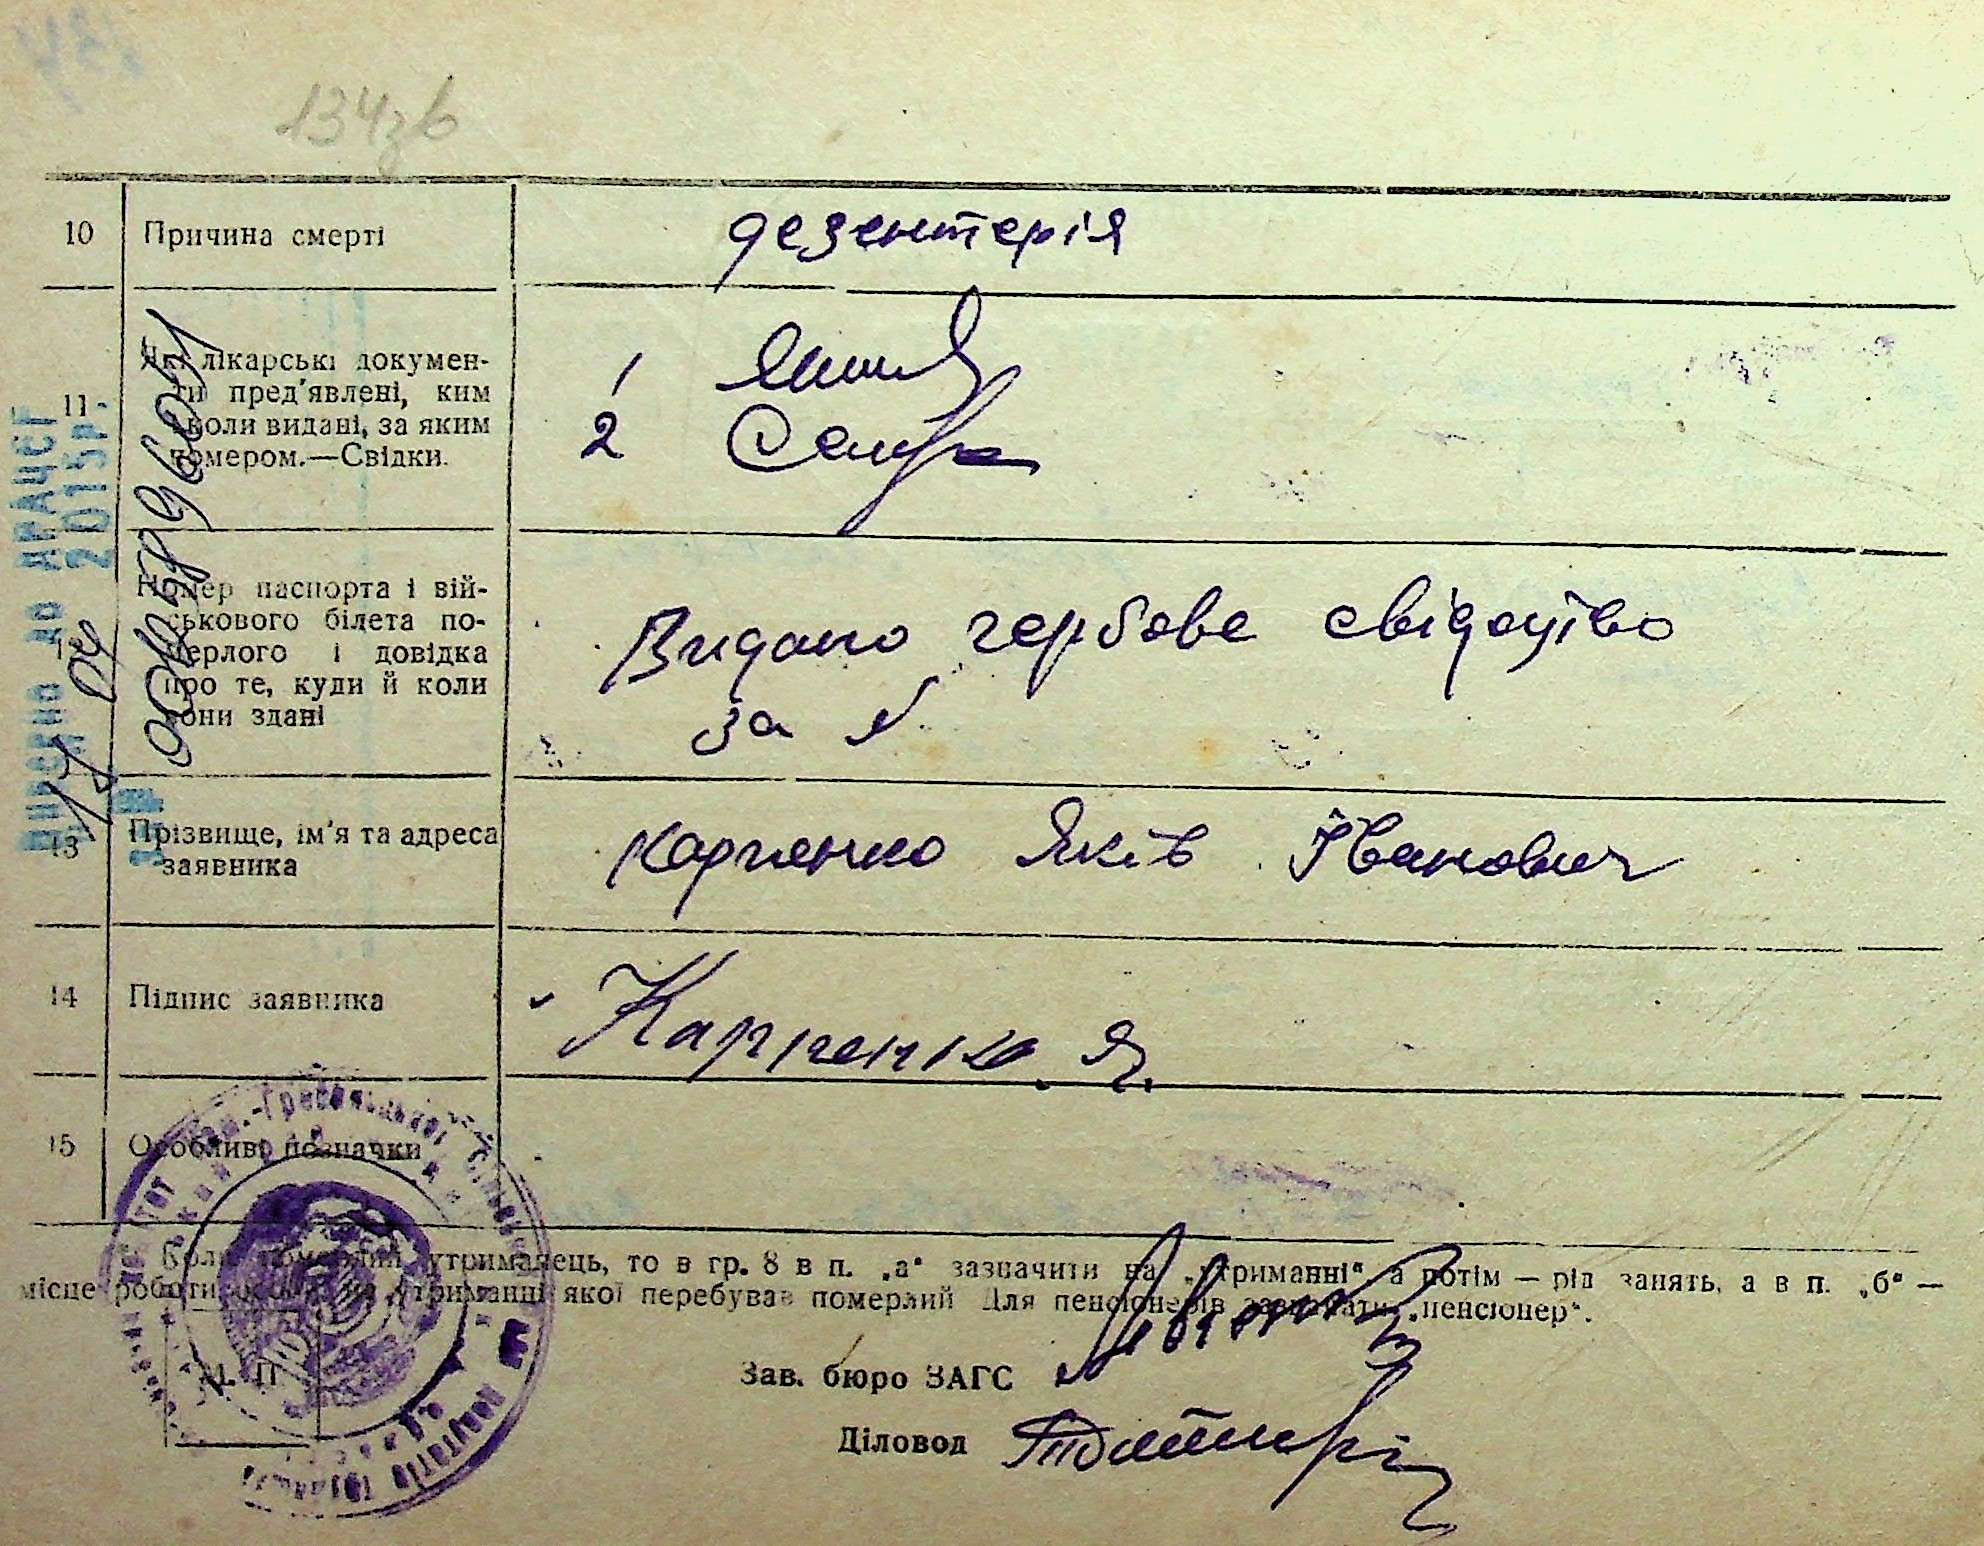 134зв
10 Причина смерті дезентерія
11 Які лікарські докумен-
ти пред'явлені, ким
і коли видані, за яким
номером.—Свідки.
1
2
Номер паспорта і вій-
ськового білета по-
мерлого і довідка
про те, куди й коли
вони здані
Видано гербове свідоцтво
за №
13 Прізвище, ім'я та адреса
заявника
Карпенко Яків Іванович
14 Підпис заявника Карпенко Я.
15 Особливі позначки
Коли померлий утриманець, то в гр. 8 в п. „а“ зазначити на „утриманні“, а потім — рід занять, а в п. „б“ —
місце роботи особи, на утриманні якої перебував померлий Для пенсіонерів зазначати „пенсіонер“.
М. П.
Зав. бюро ЗАГС
Діловод
до ДРАЦСГ
2015р.
17 04